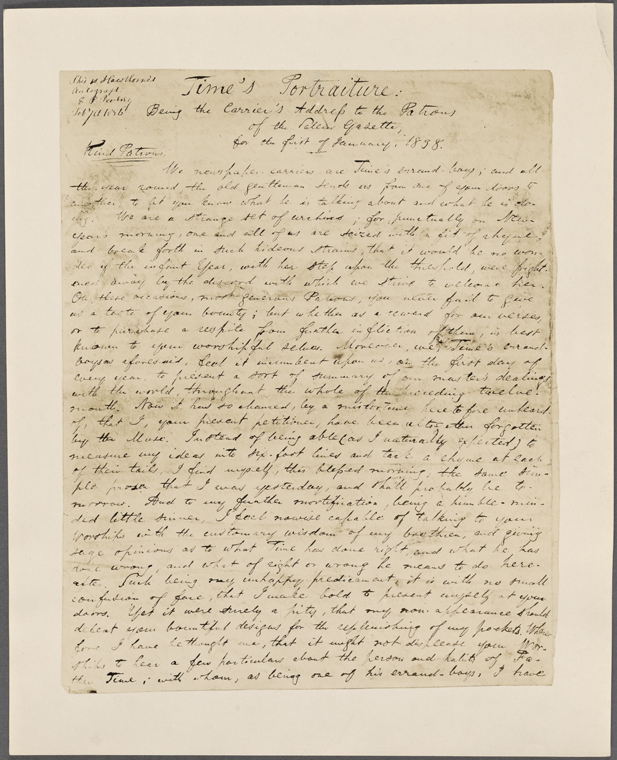 This is Hawthorne's
Autograph
Time's Portraiture:
Being the Carrier's Address to the Patrons
of the Salem Gazette,
for the first of January, 1838.
Kind Patrons,
We newspaper carriers are Time's errand-boys; and all
the year round, the old gentleman sends us from one of your doors to
another, to let you know what he is talking about and what he is do-
ing. We are a strange set of urchins; for, punctually on New
Year's morning, one and all of us are seized with a fit of rhyme,
and break forth in such hideous strains, that it would be no won-
der if the infant Year, with her step upon the threshold, were fright-
ened away by the discord with which we strive to welcome her.
On these occasions, most generous Patrons, you never fail to give
us a taste of your bounty; but whether as a reward for our verses,
or to purchase a respite from further infliction of them, is best
known to your worshipful selves. Moreover, we, Time's errand-
boys as aforesaid, feel it incumbent upon us, on the first day of
every year, to present a sort of summary of our master's dealings
with the world, throughout the whole of the preceding twelve-
month. Now it has so chanced, by a misfortune heretofore unheard
of, that I, your present petitioner, have been altogether forgotten
by the Muse. Instead of being able (as I naturally expected) to
measure my ideas into six-foot lines and tack a rhyme at each
of their tails, I find myself, this blessed morning, the same sim-
ple proser that I was yesterday, and shall probably be to-
morrow. And to my further mortification, being a humble-min-
ded little sinner, I feel nowise capable of talking to your
worships with the customary wisdom of my brethren, and giving
sage opinions as to what Time has done right, and what he has
done wrong, and what of right or wrong he means to do here-
after. Such being my unhappy predicament, it is with no small
confusion of face, that I make bold to present myself at your
doors. Yet it were surely a pity, that my non-appearance should
defeat your bountiful designs for the replenishing of my pockets. Where-
fore I have bethought me, that it might not displease your Wor-
ships to hear a few particulars about the person and habits of Fa-
ther Time; with whom, as being one of his errand-boys, I have